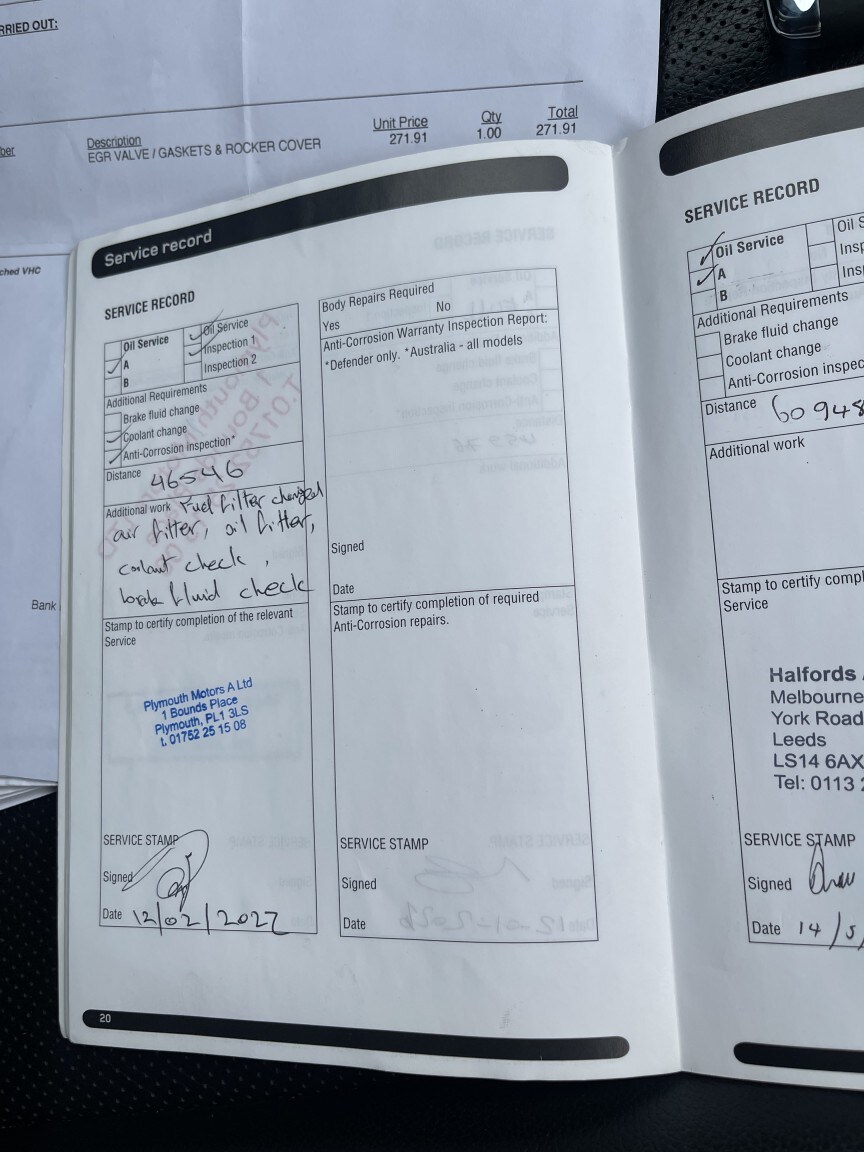 RRIED OUT:
ber Description Unit Price Qty Total
EGR VALVE / GASKETS & ROCKER COVER 271.91 1.00 271.91
ched VHC
Bank
Service record
SERVICE RECORD
Oil Service Oil Service
A Inspection 1
B Inspection 2
Additional Requirements
Brake fluid change
Coolant change
Anti-Corrosion inspection*
Distance 46546
Additional work Fuel filter changed
air filter, oil filter,
coolant check,
brake fluid check
Stamp to certify completion of the relevant
Service
Plymouth Motors A Ltd
1 Bounds Place
Plymouth, PL1 3LS
t. 01752 25 15 08
SERVICE STAMP
Signed
Date 12/02/2022
20
Body Repairs Required
Yes No
Anti-Corrosion Warranty Inspection Report:
*Defender only. *Australia - all models
Signed
Date
Stamp to certify completion of required
Anti-Corrosion repairs.
SERVICE STAMP
Signed
Date
SERVICE RECORD
Oil Service Oil S
A Insp
B Insp
Additional Requirements
Brake fluid change
Coolant change
Anti-Corrosion inspec
Distance 60948
Additional work
Stamp to certify compl
Service
Halfords
Melbourne
York Road
Leeds
LS14 6AX
Tel: 0113 2
SERVICE STAMP
Signed
Date 14/5/